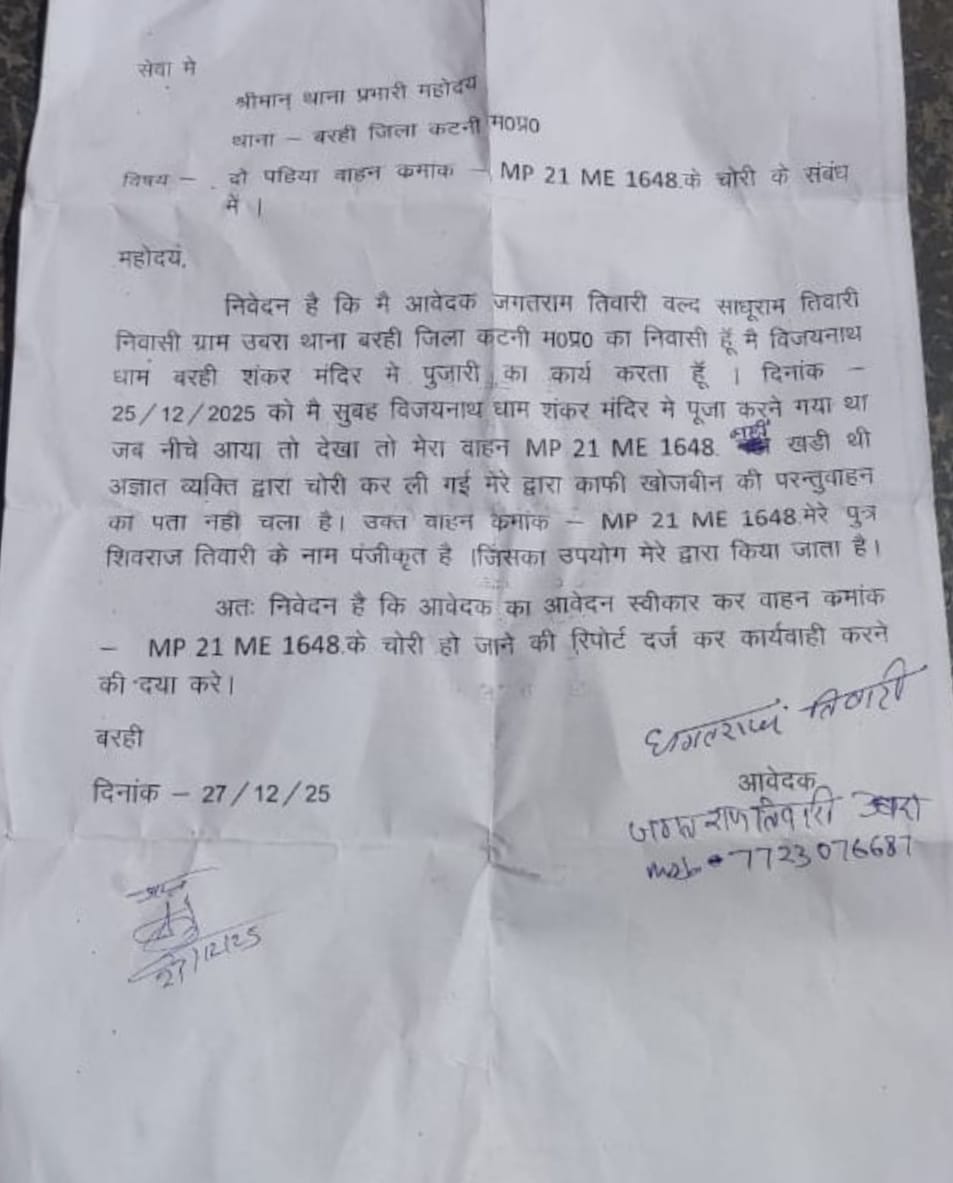 सेवा मे
श्रीमान् थाना प्रभारी महोदय
थाना – बरही जिला कटनी म0प्र0
विषय – . दो पहिया वाहन कमांक – MP 21 ME 1648.के चोरी के संबंध
में ।
महोदयं,
निवेदन है कि मै आवेदक जगतराम तिवारी वल्द साधूराम तिवारी
निवासी ग्राम उबरा थाना बरही जिला कटनी म0प्र0 का निवासी हूँ मै विजयनाथ
धाम बरही शंकर मंदिर मे पुजारी का कार्य करता हूँ । दिनांक –
25/12/2025 को मै सुबह विजयनाथ धाम शंकर मंदिर मे पूजा करने गया था
जब नीचे आया तो देखा तो मेरा वाहन MP 21 ME 1648. नहीं खडी थी
अज्ञात व्यक्ति द्वारा चोरी कर ली गई मेरे द्वारा काफी खोजबीन की परन्तुवाहन
का पता नही चला है। उक्त वाहन कमांक – MP 21 ME 1648.मेरे पुत्र
शिवराज तिवारी के नाम पंजीकृत है ।जिसका उपयोग मेरे द्वारा किया जाता है।
अतः निवेदन है कि आवेदक का आवेदन स्वीकार कर वाहन कमांक
– MP 21 ME 1648.के चोरी हो जाने की रिपोर्ट दर्ज कर कार्यवाही करने
की दया करे।
बरही
दिनांक – 27/12/25
जगतराम तिवारी
आवेदक
जगतराम तिवारी उबरा
mob. 7723076687
27/12/25